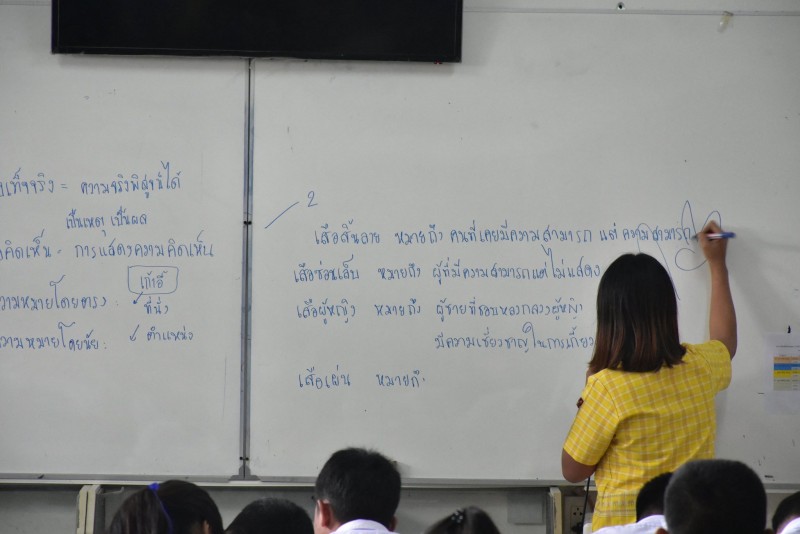 เท็จจริง = ความจริงพิสูจน์ได้
เป็นเหตุ เป็นผล
คิดเห็น - การแสดงความคิดเห็น
เก้าอี้
ความหมายโดยตรง : ✓ ที่นั่ง
ความหมายโดยนัย : ✓ ตำแหน่ง
2
เสือสิ้นลาย หมายถึง คนที่เคยมีความสามารถ แต่ ความสามารถ
เสือซ่อนเล็บ หมายถึง ผู้ที่มีความสามารถแต่ไม่แสดง
เสือผู้หญิง หมายถึง ผู้ชายที่ชอบหลอกลวงผู้หญิง
มีความเชี่ยวชาญในการเกี้ยว
เสือเผ่น หมายถึ